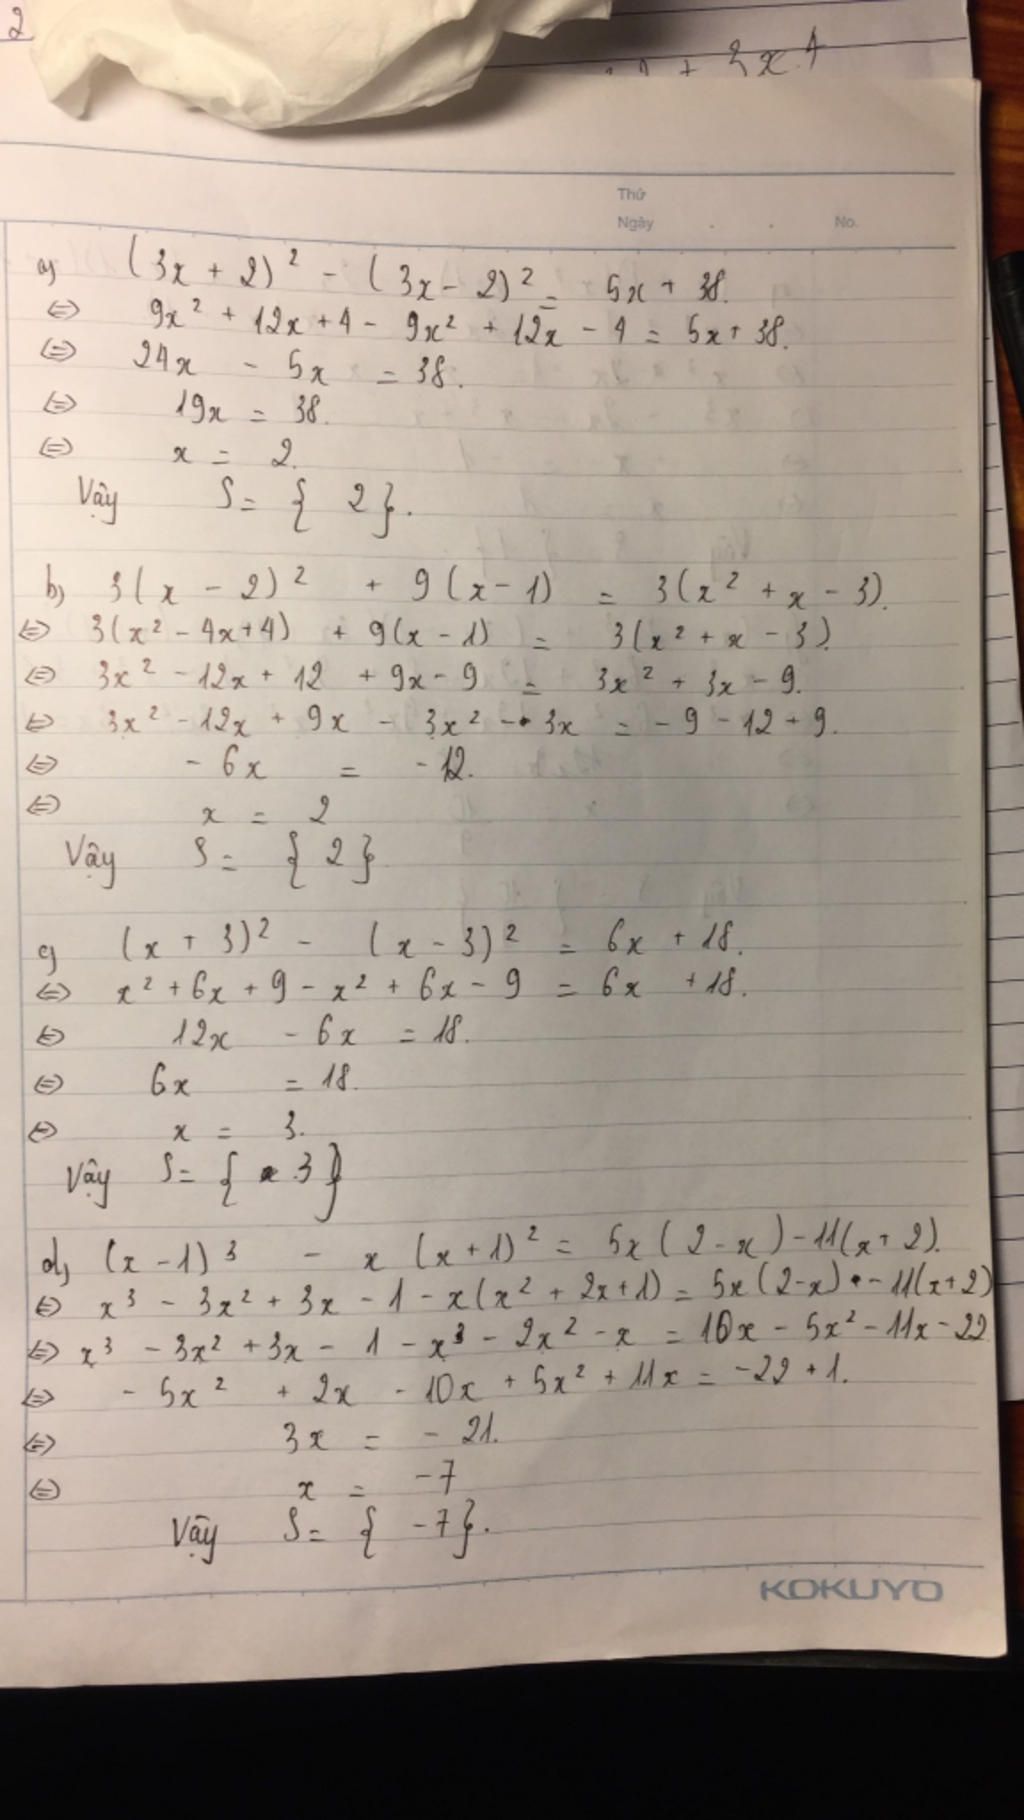 2
+ 3x.4
Thứ
Ngày . . No.
a) (3x + 2)² - (3x - 2)² = 5x + 38.
⇔ 9x² + 12x + 4 - 9x² + 12x - 4 = 5x + 38.
⇔ 24x - 5x = 38.
⇔ 19x = 38.
⇔ x = 2.
Vậy S = { 2 }.
b) 3(x - 2)² + 9(x - 1) = 3(x² + x - 3).
⇔ 3(x² - 4x + 4) + 9(x - 1) = 3(x² + x - 3).
⇔ 3x² - 12x + 12 + 9x - 9 = 3x² + 3x - 9.
⇔ 3x² - 12x + 9x - 3x² - 3x = - 9 - 12 + 9.
⇔ - 6x = - 12.
⇔ x = 2
Vậy S = { 2 }
c) (x + 3)² - (x - 3)² = 6x + 18.
⇔ x² + 6x + 9 - x² + 6x - 9 = 6x + 18.
⇔ 12x - 6x = 18.
⇔ 6x = 18.
⇔ x = 3.
Vậy S = { 3 }
d) (x - 1)³ - x (x + 1)² = 5x (2 - x) - 11(x + 2).
⇔ x³ - 3x² + 3x - 1 - x(x² + 2x + 1) = 5x(2 - x) - 11(x + 2)
⇔ x³ - 3x² + 3x - 1 - x³ - 2x² - x = 10x - 5x² - 11x - 22
⇔ - 5x² + 2x - 10x + 5x² + 11x = - 22 + 1.
⇔ 3x = - 21.
⇔ x = - 7
Vậy S = { - 7 }.
KOKUYO